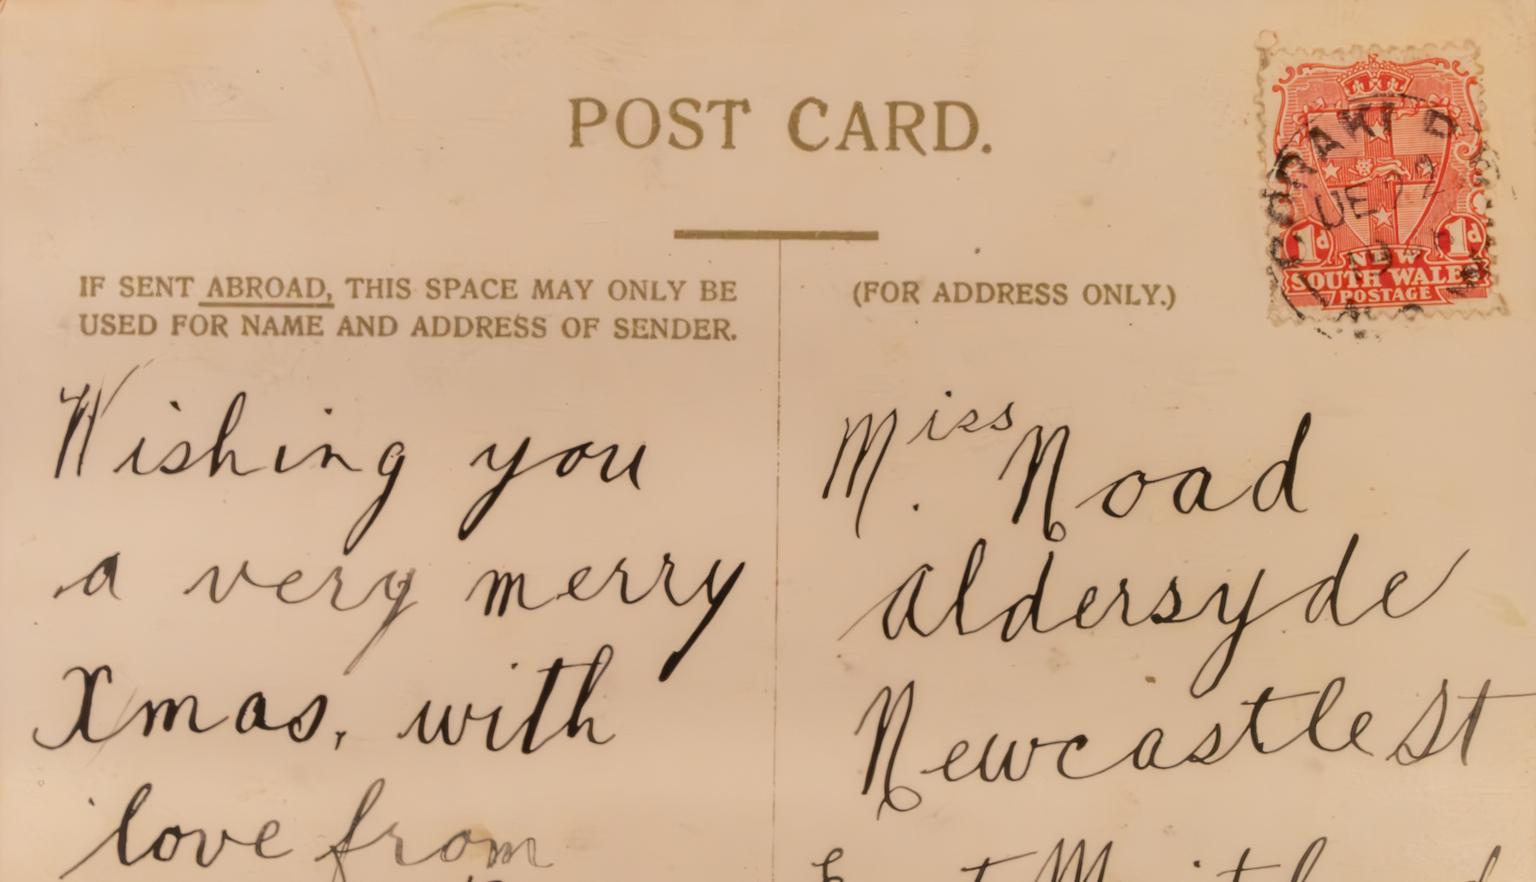 POST CARD.
IF SENT ABROAD, THIS SPACE MAY ONLY BE
USED FOR NAME AND ADDRESS OF SENDER.
(FOR ADDRESS ONLY.)
1d 1d
NEW
SOUTH WALES
POSTAGE
Wishing you
a very merry
Xmas, with
love from
Miss Noad
Aldersyde
Newcastle St